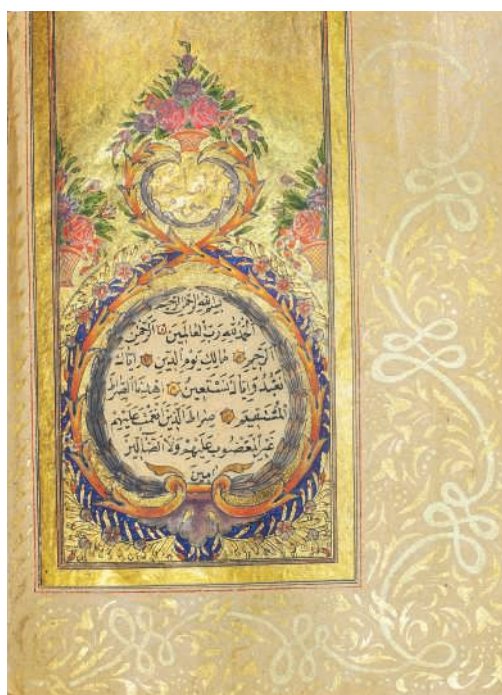 بسم الله الرحمن الرحيم
الحمد لله رب العالمين الرحمن
الرحيم مالك يوم الدين اياك
نعبد واياك نستعين اهدنا الصراط
المستقيم صراط الذين انعمت عليهم
غير المغضوب عليهم ولا الضالين
امين